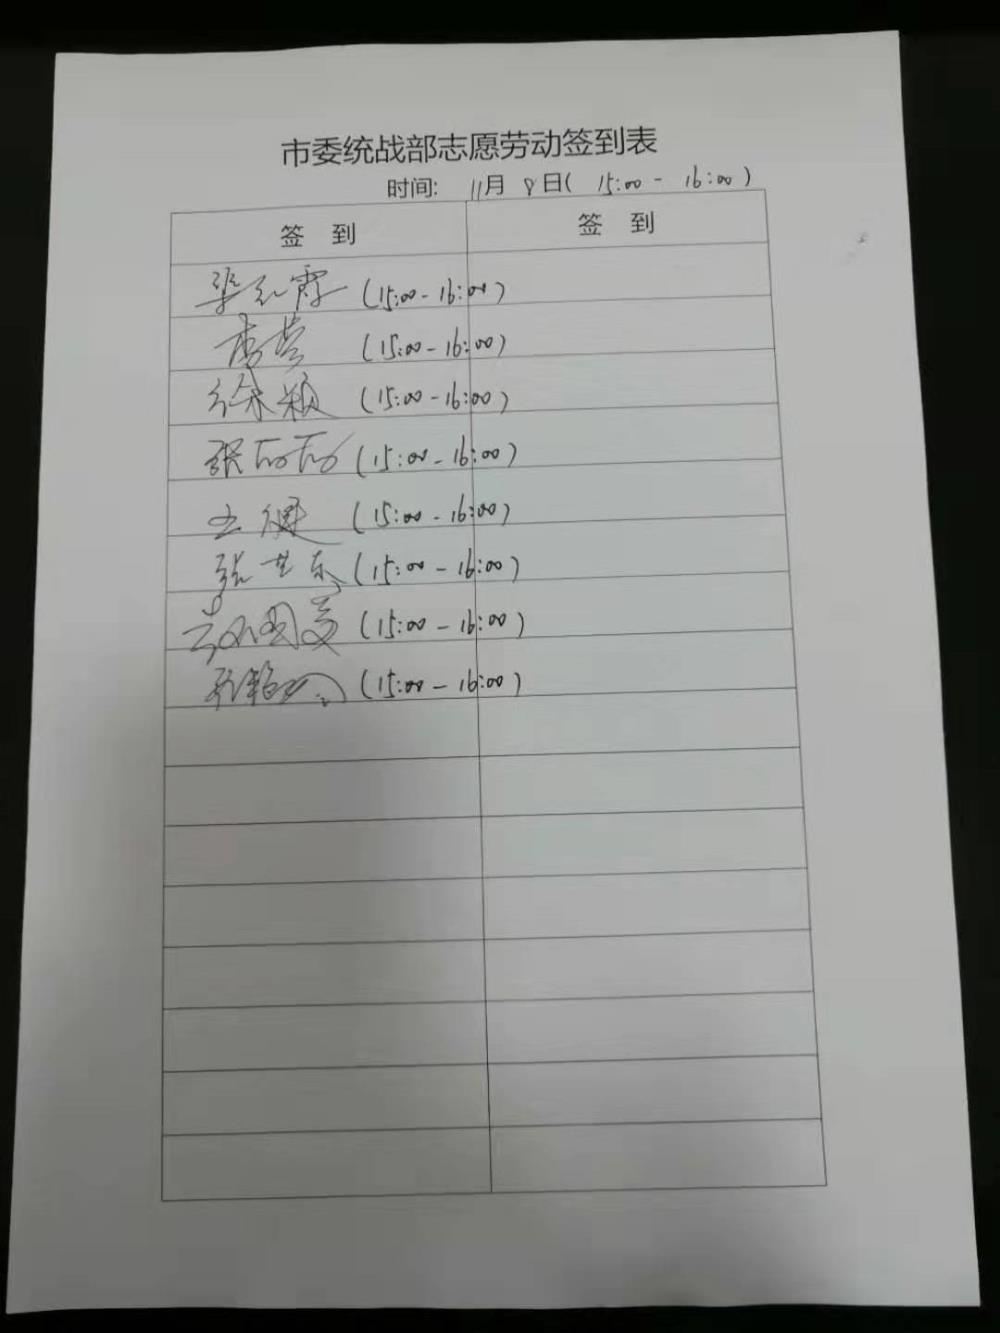 市委统战部志愿劳动签到表
时间: 11月8日( 15:00 - 16:00 )
签 到 签 到
(15:00-16:00)
(15:00-16:00)
徐颖 (15:00-16:00)
张 (15:00-16:00)
王健 (15:00-16:00)
张 (15:00-16:00)
(15:00-16:00)
(15:00-16:00)